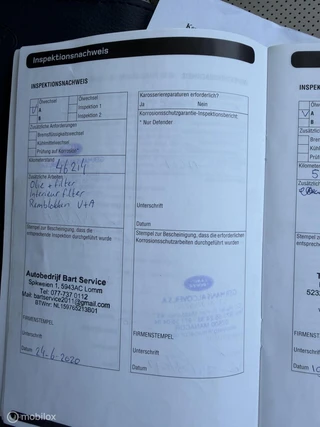 Inspektionsnachweis
INSPEKTIONSNACHWEIS
Ölwechsel
A
B
Ölwechsel
Inspektion 1
Inspektion 2
Zusätzliche Anforderungen
Bremsflüssigkeitswechsel
Kühlmittelwechsel
Prüfung auf Korrosion
Kilometerstand
46214
Zusätzliche Arbeiten
Olie + filter
Interieur filter
Remblokken V+A
Stempel zur Bescheinigung, dass die
entsprechende Inspektion durchgeführt wurde
Autobedrijf Bart Service
Spikweien 1, 5943AC Lomm
Tel: 077-737 0112
Mail: bartservice2011@gmail.com
BTWnr: NL159765213B01
FIRMENSTEMPEL
Unterschrift
Datum 24-6-2020
Karosseriereparaturen erforderlich?
Ja Nein
Korrosionsschutzgarantie-Inspektionsbericht
* Nur Defender
Unterschrift
Datum
Stempel zur Bescheinigung, dass die erforderlichen
Korrosionsschutzarbeiten durchgeführt wurden
FIRMENSTEMPEL
Unterschrift
Datum
INSPEK
A
B
Zusätzliche
Kilometer
5
Zusätzlich
Stempel
entspreche
523
T
FIRMENS
Unterschri
Datum
mobilox